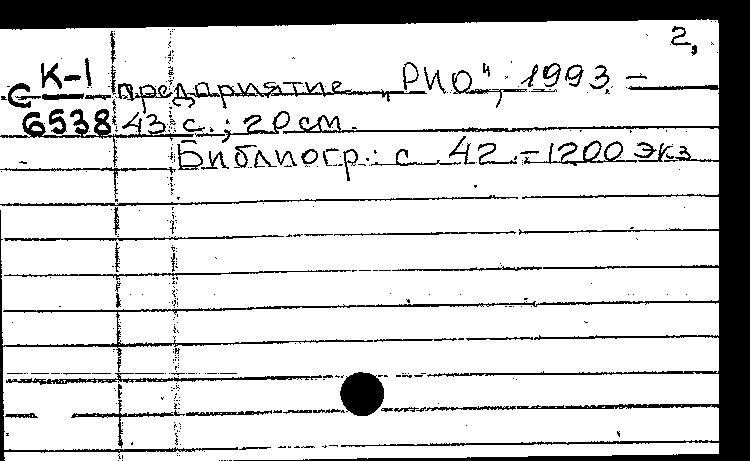 2,
С К-1 предприятие „РИО", 1993. –
6538 43 с.; 20 см.
Библиогр.: с. 42. – 1200 экз